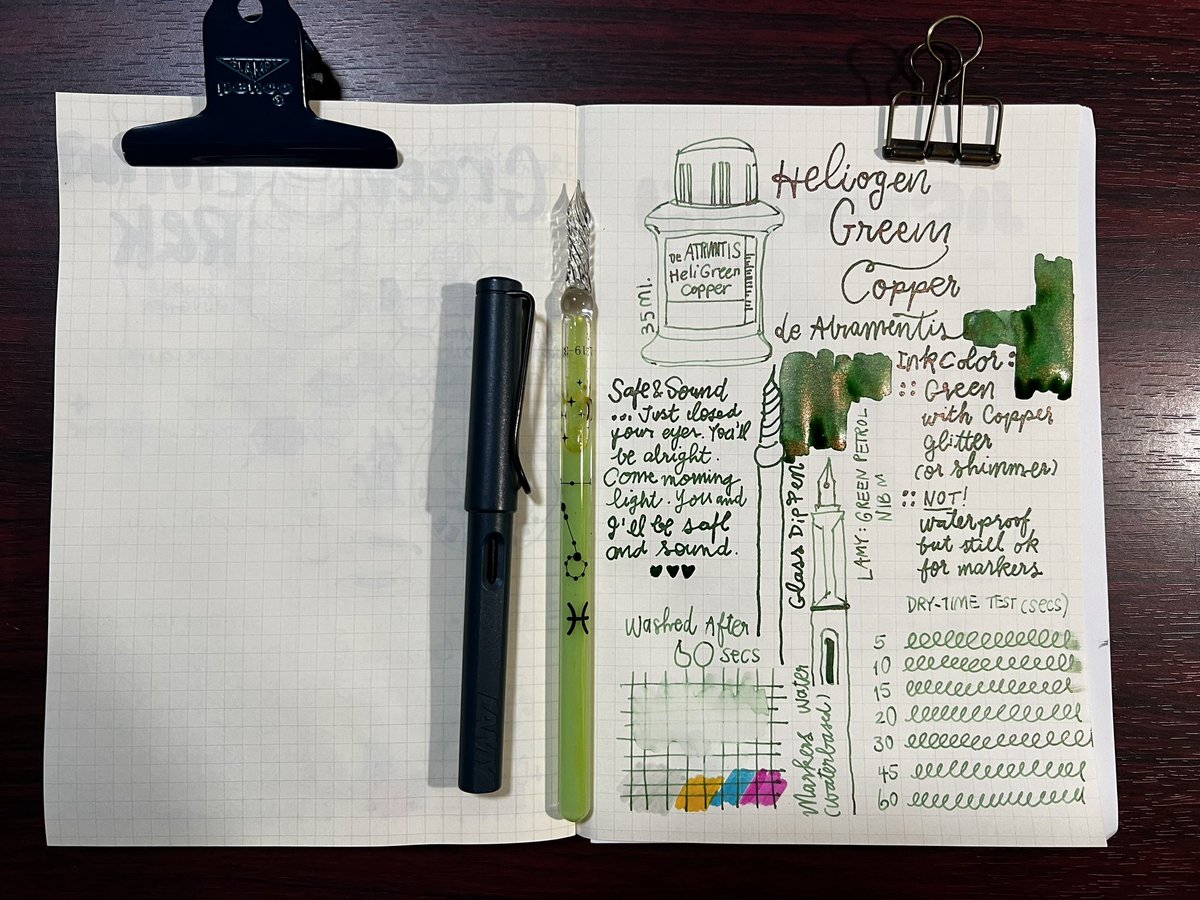 penco
®
Heliogen
Green
Copper
de Atramentis
de ATRMNTIS
HeliGreen
Copper
35ml.
InkColor:
:: Green
with Copper
glitter
(or shimmer)
:: NOT!
waterproof
but still ok
for markers
Safe&Sound
... Just closed
your eyes. You'll
be alright.
Come morning
light. You and
I'll be safe
and sound.
Glass Dip Pen
LAMY: GREEN PETROL
NIB M
Washed After
60 secs
Markers Water
(waterbased)
DRY-TIME TEST (secs)
5
10
15
20
30
45
60
LAMY